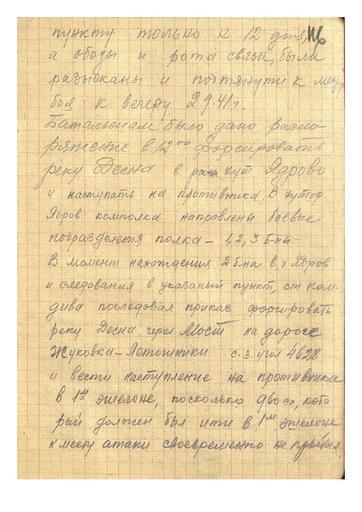 пункту только к 12 дня,
а обозы и рота связи были
разысканы и подтянуты к месту
боя к вечеру 2.9.41 г.
Батальонам было дано распо
ряжение в 12⁰⁰ форсировать
реку Десна в районе хут Ядрово
и наступать на противника. В хутор
Ядров комполка направлены боевые
подразделения полка – 1,2,3 б-ны
В момент нахождения 2 б-на в х Ядров
и следования в указаный пункт, от ком.
дива последовал приказ форсировать
реку Десна через Мост на дороге
Жуковка–Летошники с.з. угол 4628
и вести наступление на противника
в 1ом эшелоне, поскольку 960 сп, кото
рый должен был итти в 1ом эшелоне
к месту атаки своевременно не прибыл.